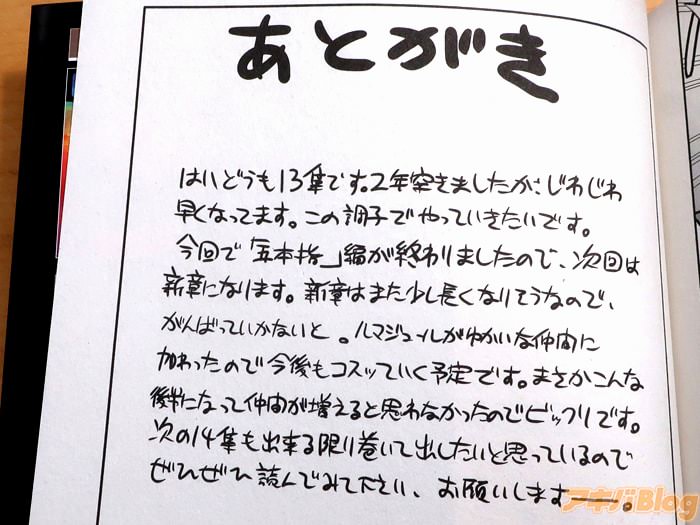 あとがき
はいどうも13集です。2年空きましたが、じわじわ
早くなってます。この調子でやっていきたいです。
今回で「五本指」編が終わりましたので、次回は
新章になります。新章はまた少し長くなりそうなので、
がんばっていかないと。ルマジュールがゆかいな仲間に
加わったので今後もコスッていく予定です。まさかこんな
後半になって仲間が増えると思わなかったのでビックリです。
次の14集も出来る限り巻いて出したいと思っているので
ぜひぜひ読んでみて下さい、お願いします――。
アキバBlog